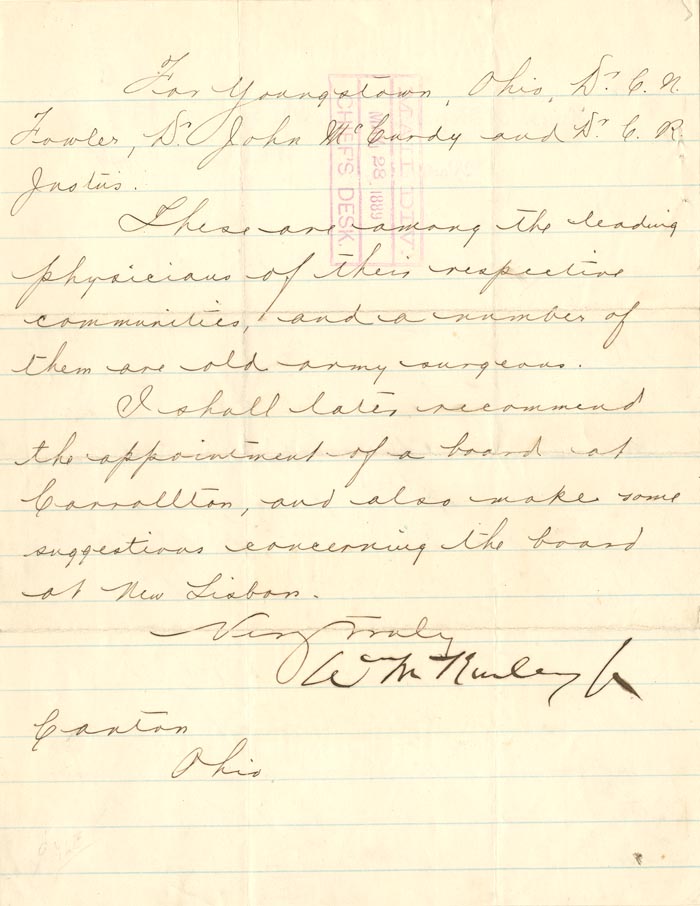 For Youngstown, Ohio, Dr. C. N.
Fowler, Dr. John McCurdy and Dr. C. R.
Justus.
These are among the leading
physicians of their respective
communities, and a number of
them are old army surgeons.
I shall later recommend
the appointment of a board at
Carrollton, and also make some
suggestions concerning the board
at New Lisbon.
Very truly
Wm McKinley Jr
Canton
Ohio
DIV.
28 1889
CHIEF'S DESK.